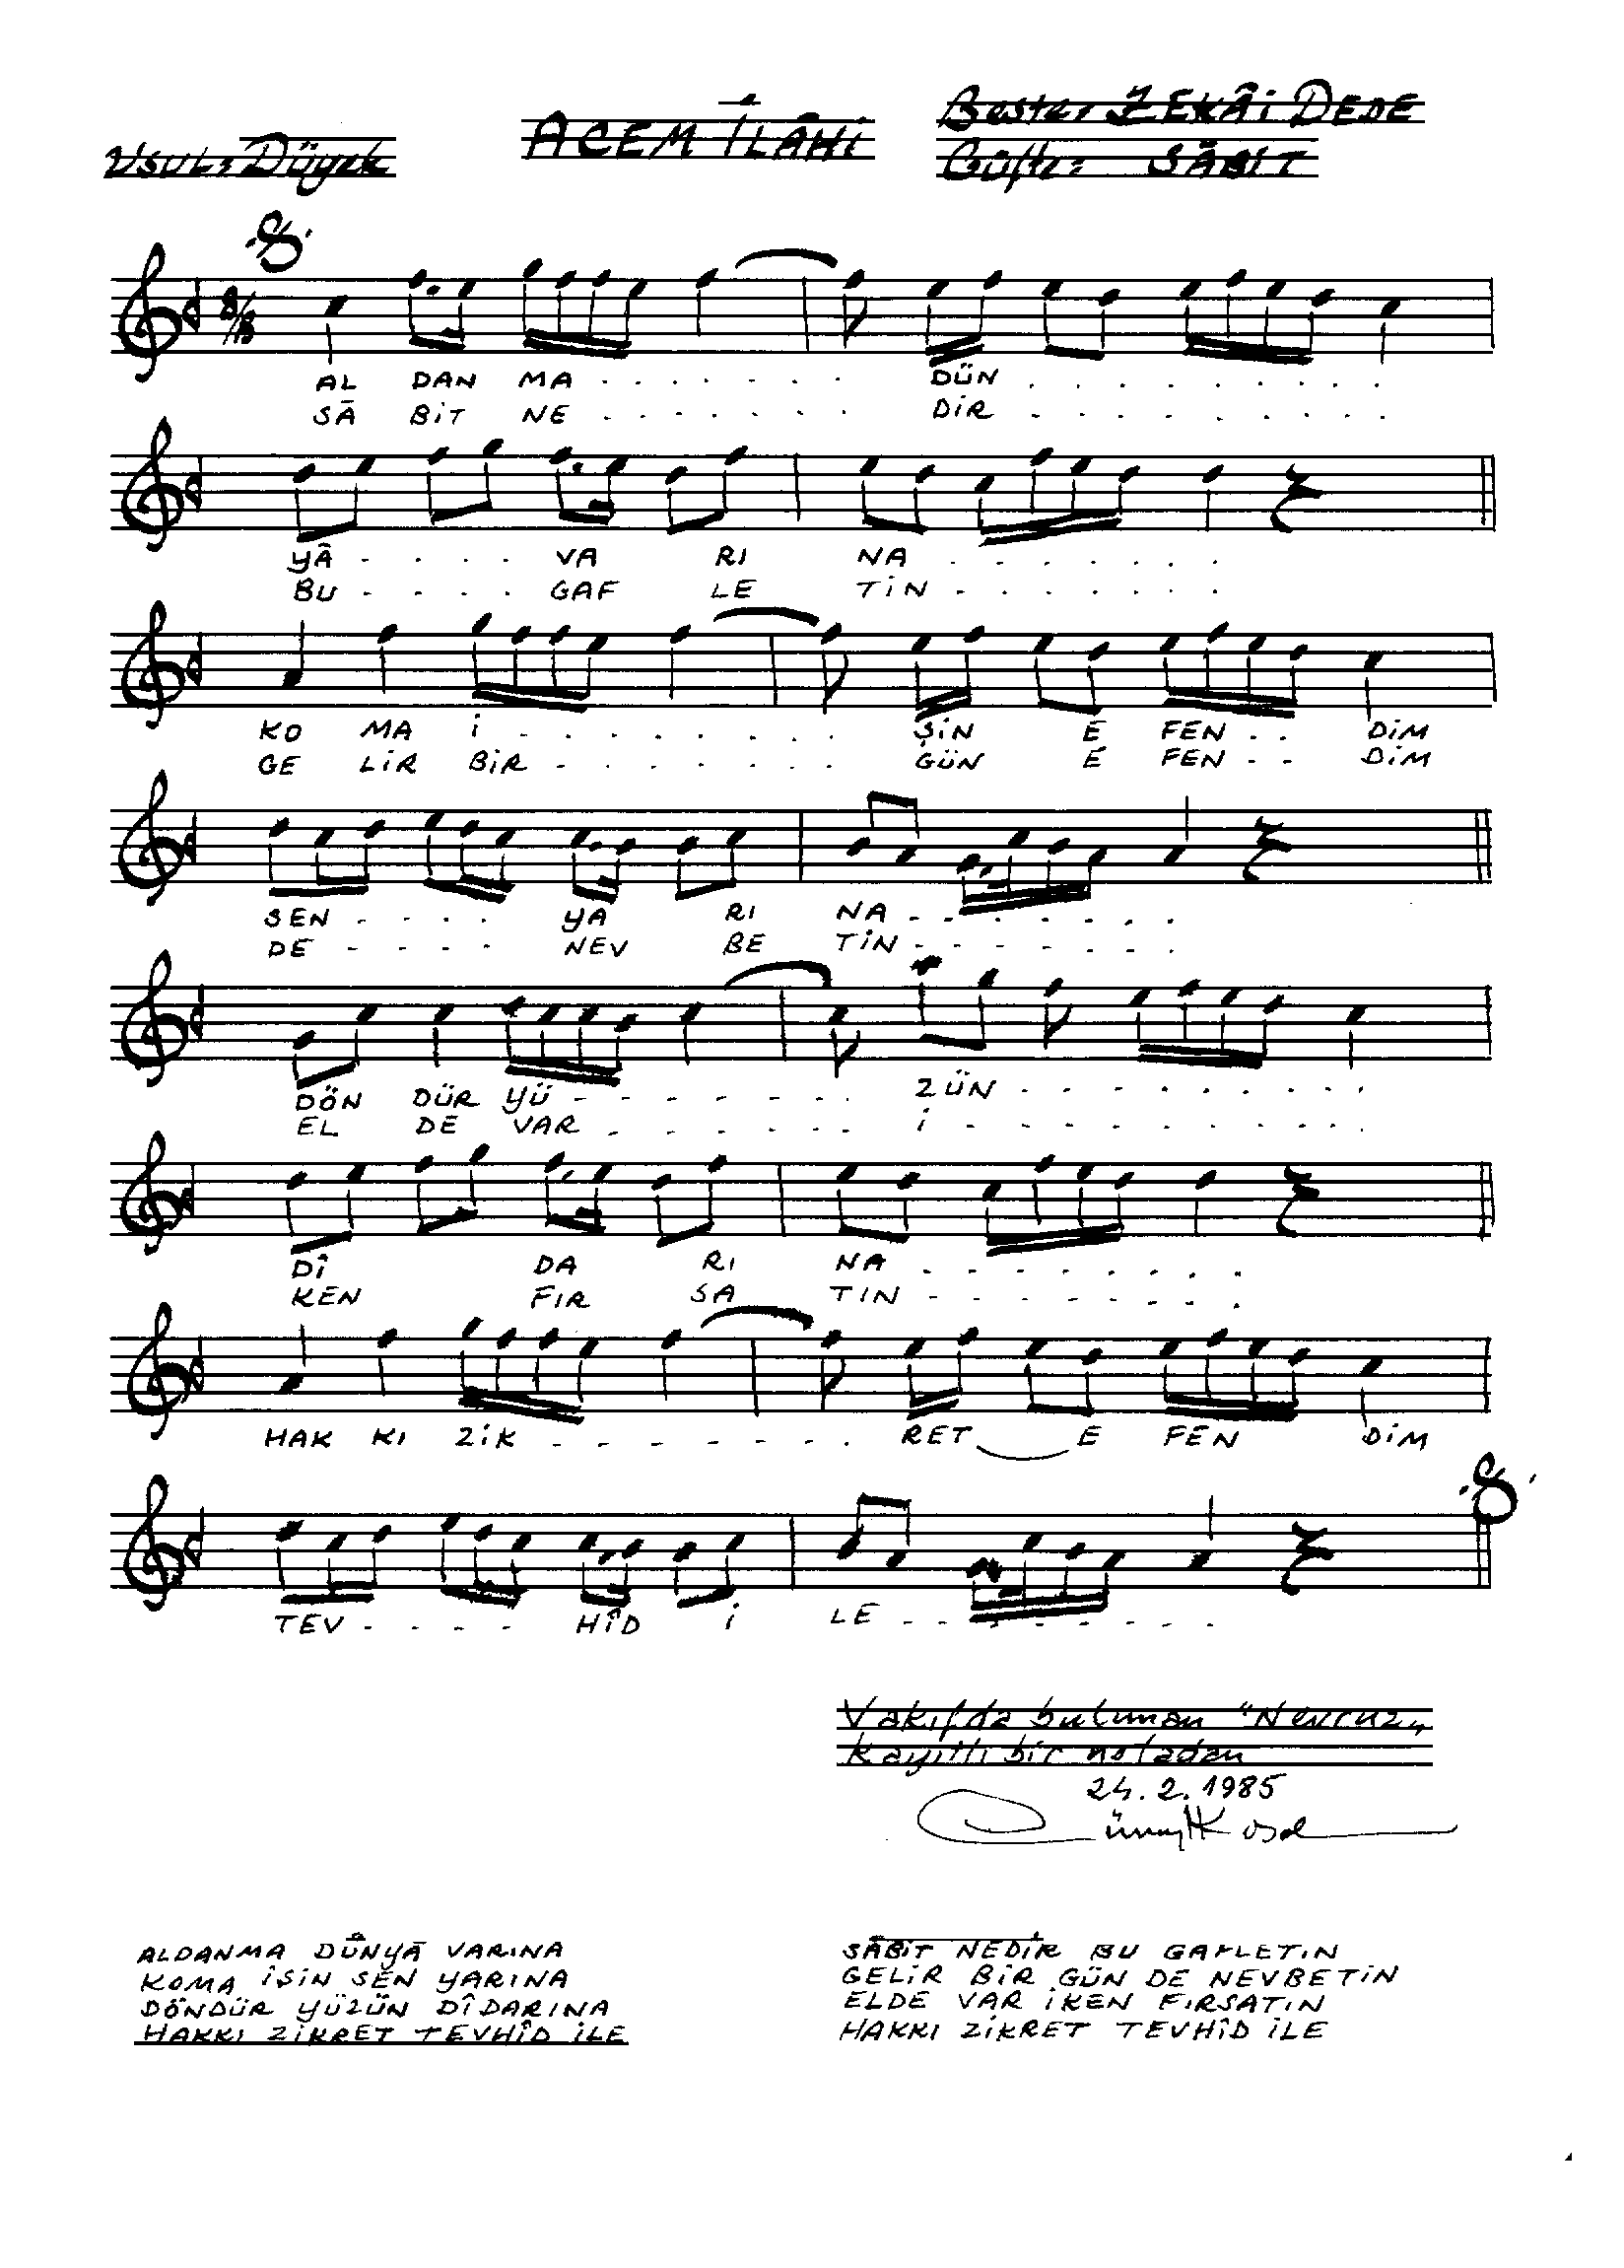 Usul: Düyek
ACEM İLÂHİ
Beste: ZEKÂİ DEDE
Güfte: SÂBİT
8/8
AL DAN MA . . . . . . . DÜN . . . . . . . . .
SÂ BİT NE . . . . . . . DİR . . . . . . . . .
YÂ . . . . VA RI NA . . . . . . .
BU . . . . GAF LE TİN . . . . . . .
KO MA İ . . . . . . . . ŞİN E FEN . . DİM
GE LİR BİR . . . . . . . GÜN E FEN - - DİM
SEN . . . . YA RI NA . . . . . . .
DE - - - - NEV BE TİN - - - - - - .
DÖN DÜR YÜ - - - - - - . ZÜN . . . . . . . . .
EL DE VAR - - - - - - . İ - - - . . . . . .
DÎ DA RI NA . . . . . . . .
KEN FIR SA TIN - - - - - - - .
HAK KI ZİK . - - - - - . RET E FEN DİM
TEV . . . . HÎD İ LE . . . . . . . .
Vakıfda bulunan "Nevruz„
kayıtlı bir notadan
24.2.1985
Cüneyt Kosal
ALDANMA DÜNYÂ VARINA
KOMA İŞİN SEN YARINA
DÖNDÜR YÜZÜN DÎDARINA
HAKKI ZİKRET TEVHÎD İLE
SÂBİT NEDİR BU GAFLETİN
GELİR BİR GÜN DE NEVBETİN
ELDE VAR İKEN FIRSATIN
HAKKI ZİKRET TEVHÎD İLE